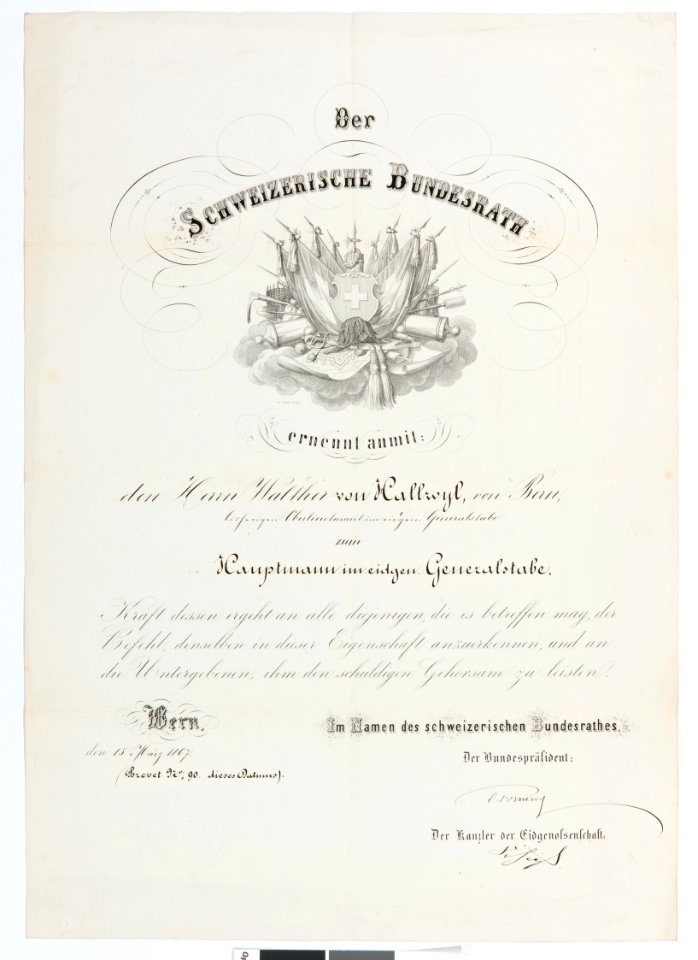 Der
SCHWEIZERISCHE BUNDESRATH
ernennt anmit:
den Herrn Walther von Hallwyl, von Bern,
bisherigen Oberlieutenant im eidgen. Generalstabe
zum
Hauptmann im eidgen. Generalstabe.
Kraft dessen ergeht an alle diejenigen, die es betreffen mag, der
Befehl, denselben in dieser Eigenschaft anzuerkennen, und an
die Untergebenen, ihm den schuldigen Gehorsam zu leisten.
Bern,
den 15. März 1867.
(Brevet Nr. 90. dieses Datums).
Im Namen des schweizerischen Bundesrathes,
Der Bundespräsident:
Der Kanzler der Eidgenossenschaft: